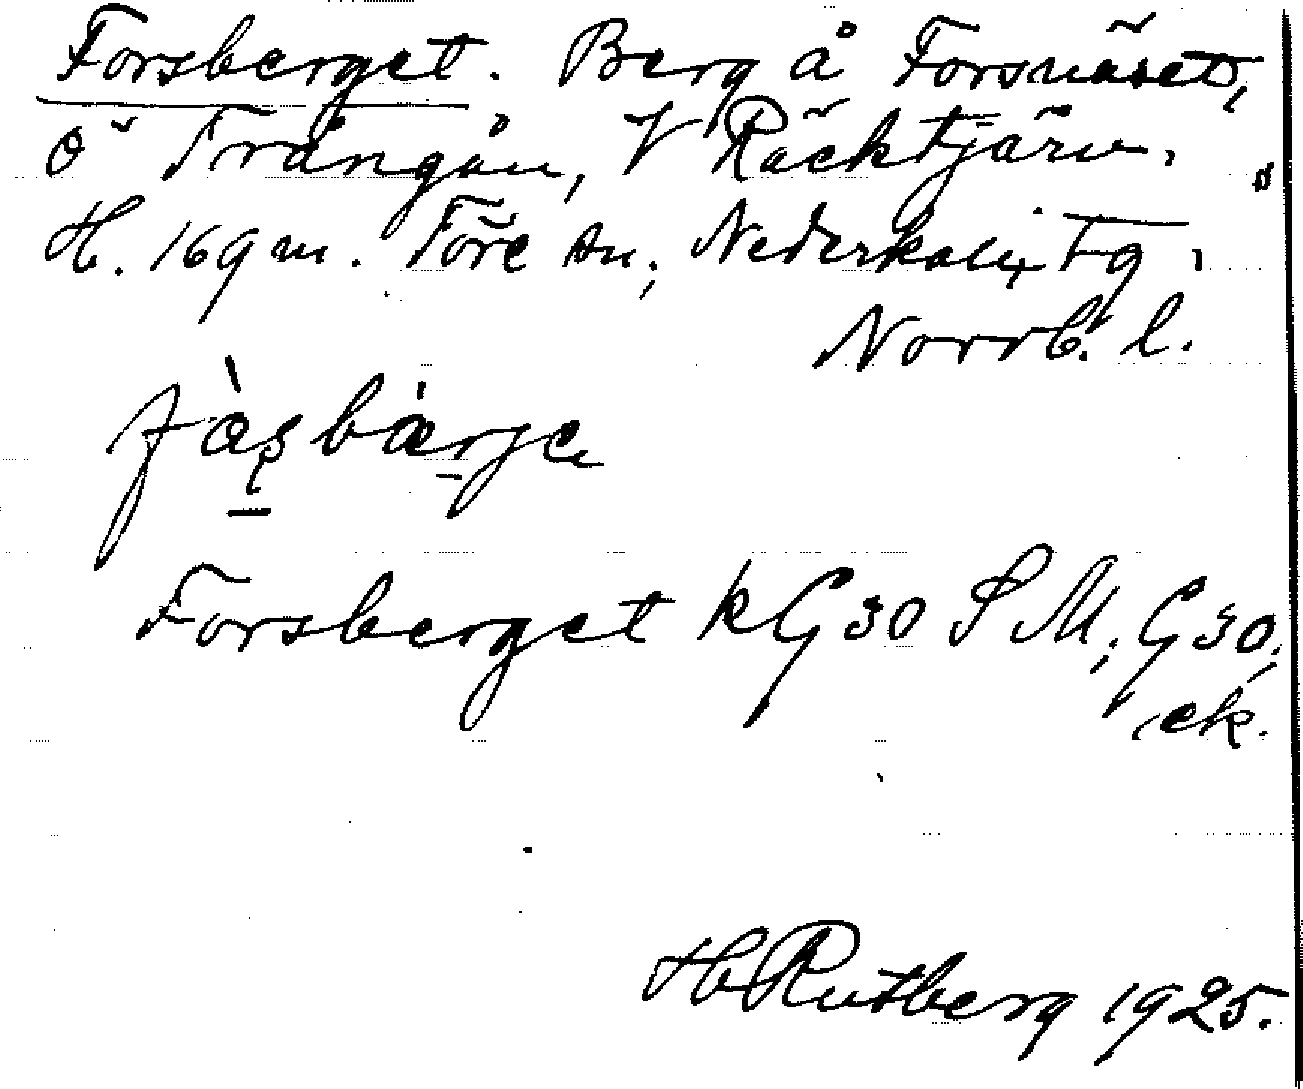 Forsberget. Berg å Forsnäset,
Ö Trångån, V Räcktjärv.
H. 169 m. Töre sn, Nederkalix tg,
Norrb. l.
Forsberget kG30 SM; G30,
ek.
HRutberg 1925.